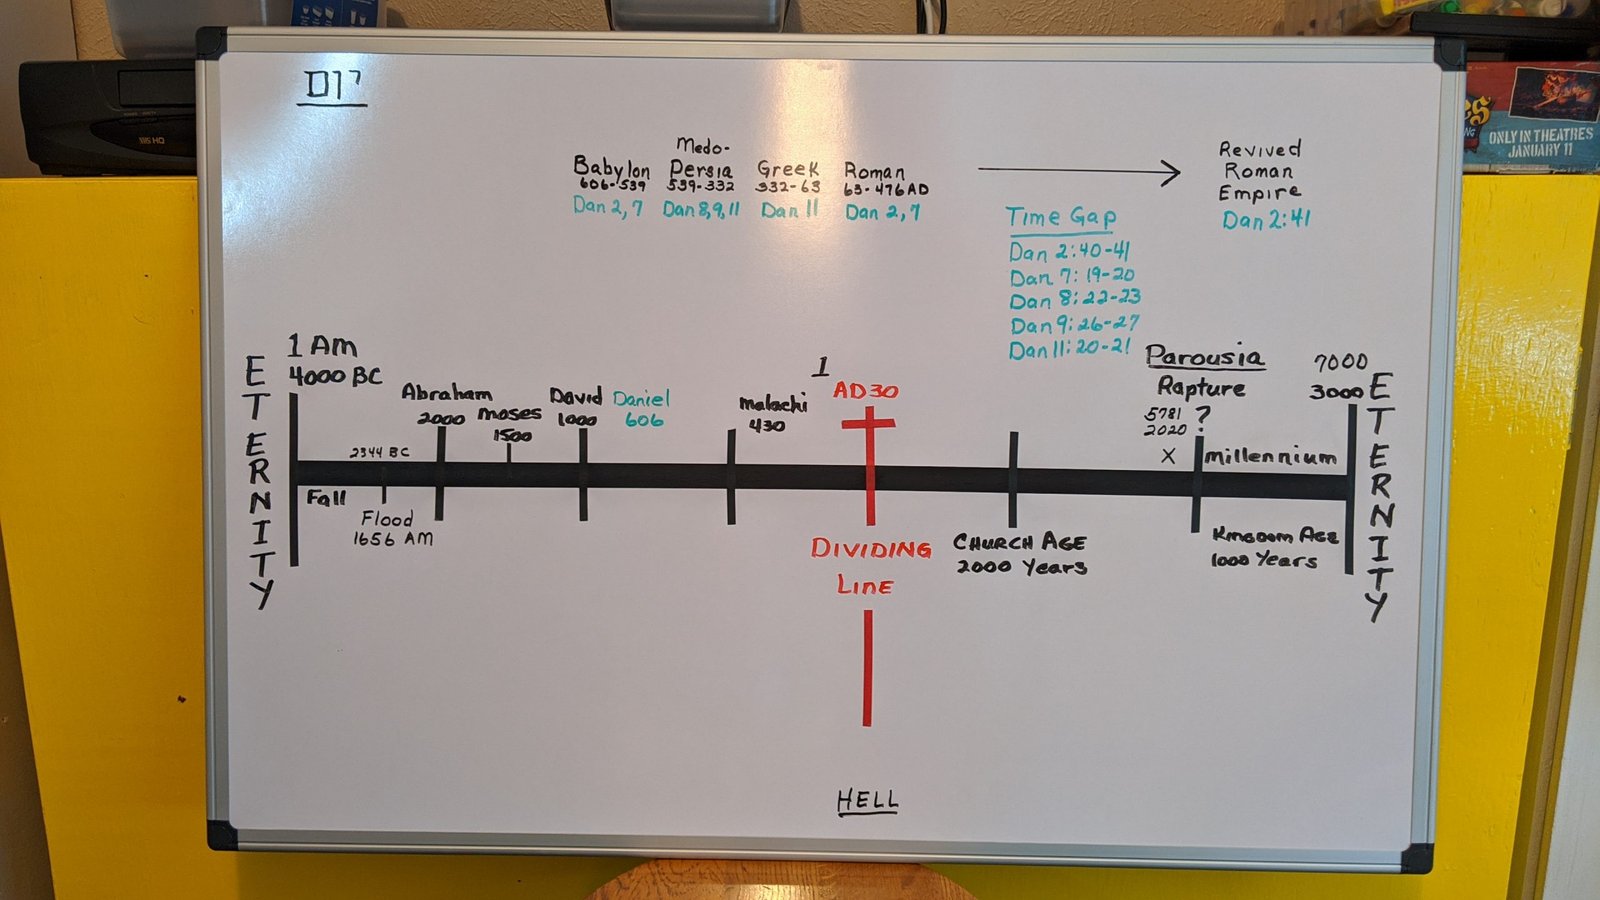 D17
Medo-
Babylon Persia Greek Roman
606-539 539-332 332-63 63-476AD
Dan 2,7 Dan 8,9,11 Dan 11 Dan 2,7
Revived
Roman
Empire
Dan 2:41
Time Gap
Dan 2:40-41
Dan 7:19-20
Dan 8:22-23
Dan 9:26-27
Dan 11:20-21
ETERNITY
1 Am
4000 BC
Fall
2344 BC
Flood
1656 AM
Abraham
2000
moses
1500
David
1000
Daniel
606
malachi
430
1
AD30
DIVIDING
LINE
CHURCH AGE
2000 Years
Parousia
Rapture
5781 ?
2020
X
millennium
KINGDOM AGE
1000 Years
7000
3000
ETERNITY
HELL
VHS HQ
ONLY IN THEATRES
JANUARY 11